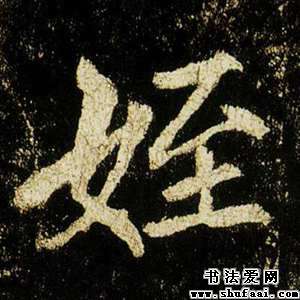 姪
书法爱网
www.shufaai.com